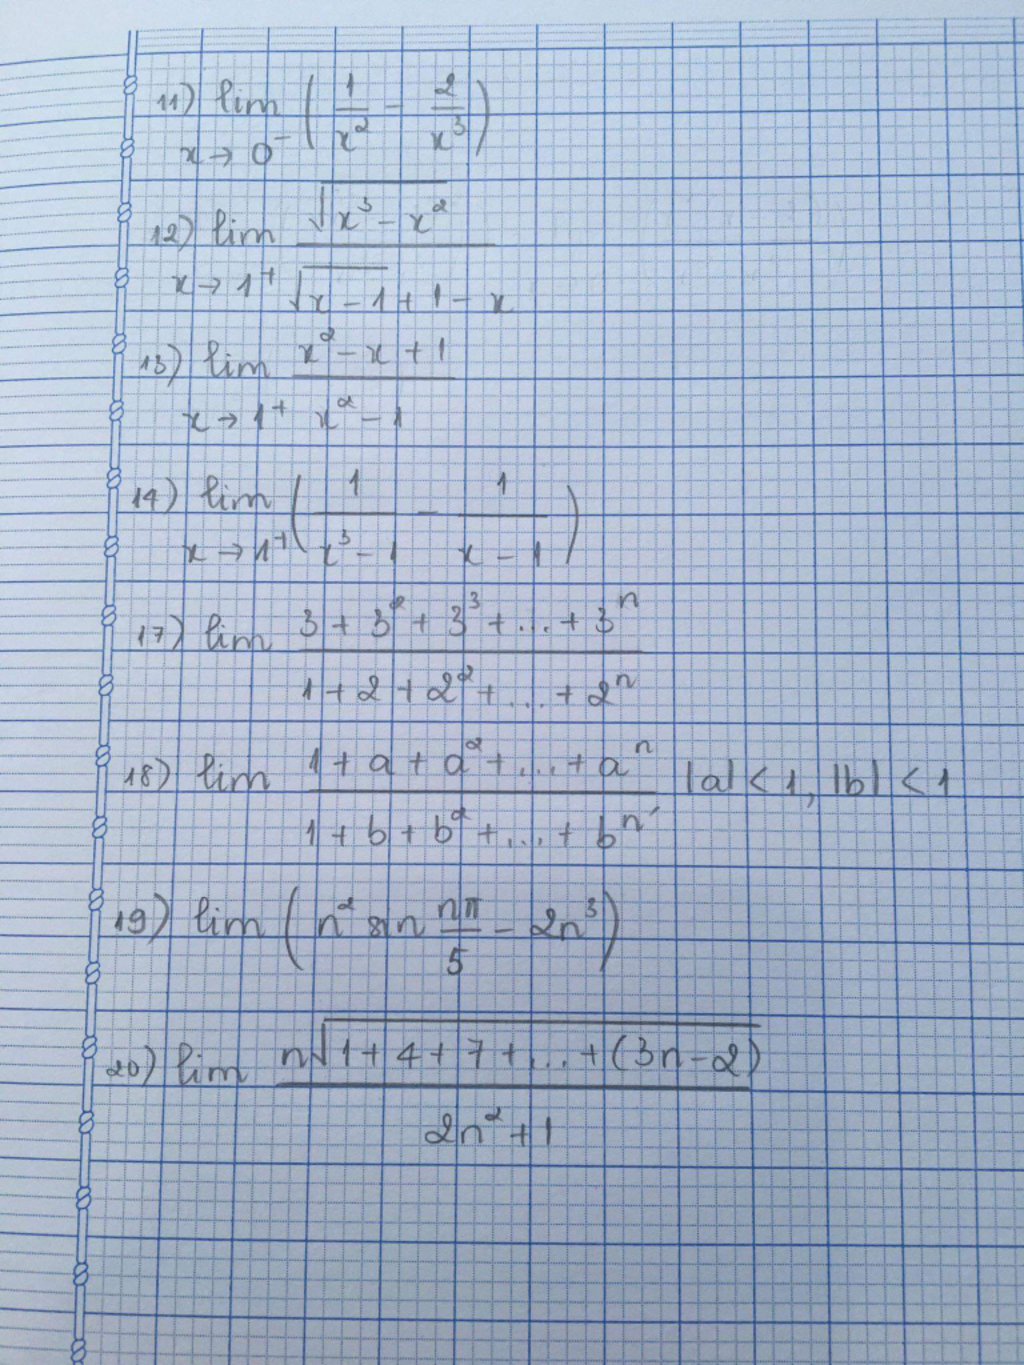 11) lim x→0⁻ (1/x² - 2/x³)
12) lim x→1⁺ √(x³ - x²) / (√(x - 1) + 1 - x)
13) lim x→1⁺ (x² - x + 1) / (x² - 1)
14) lim x→1⁺ (1/(x³ - 1) - 1/(x - 1))
17) lim (3 + 3² + 3³ + ... + 3ⁿ) / (1 + 2 + 2² + ... + 2ⁿ)
18) lim (1 + a + a² + ... + aⁿ) / (1 + b + b² + ... + bⁿ), |a| < 1, |b| < 1
19) lim (n² sin nπ/5 - 2n³)
20) lim n√(1 + 4 + 7 + ... + (3n - 2)) / (2n² + 1)